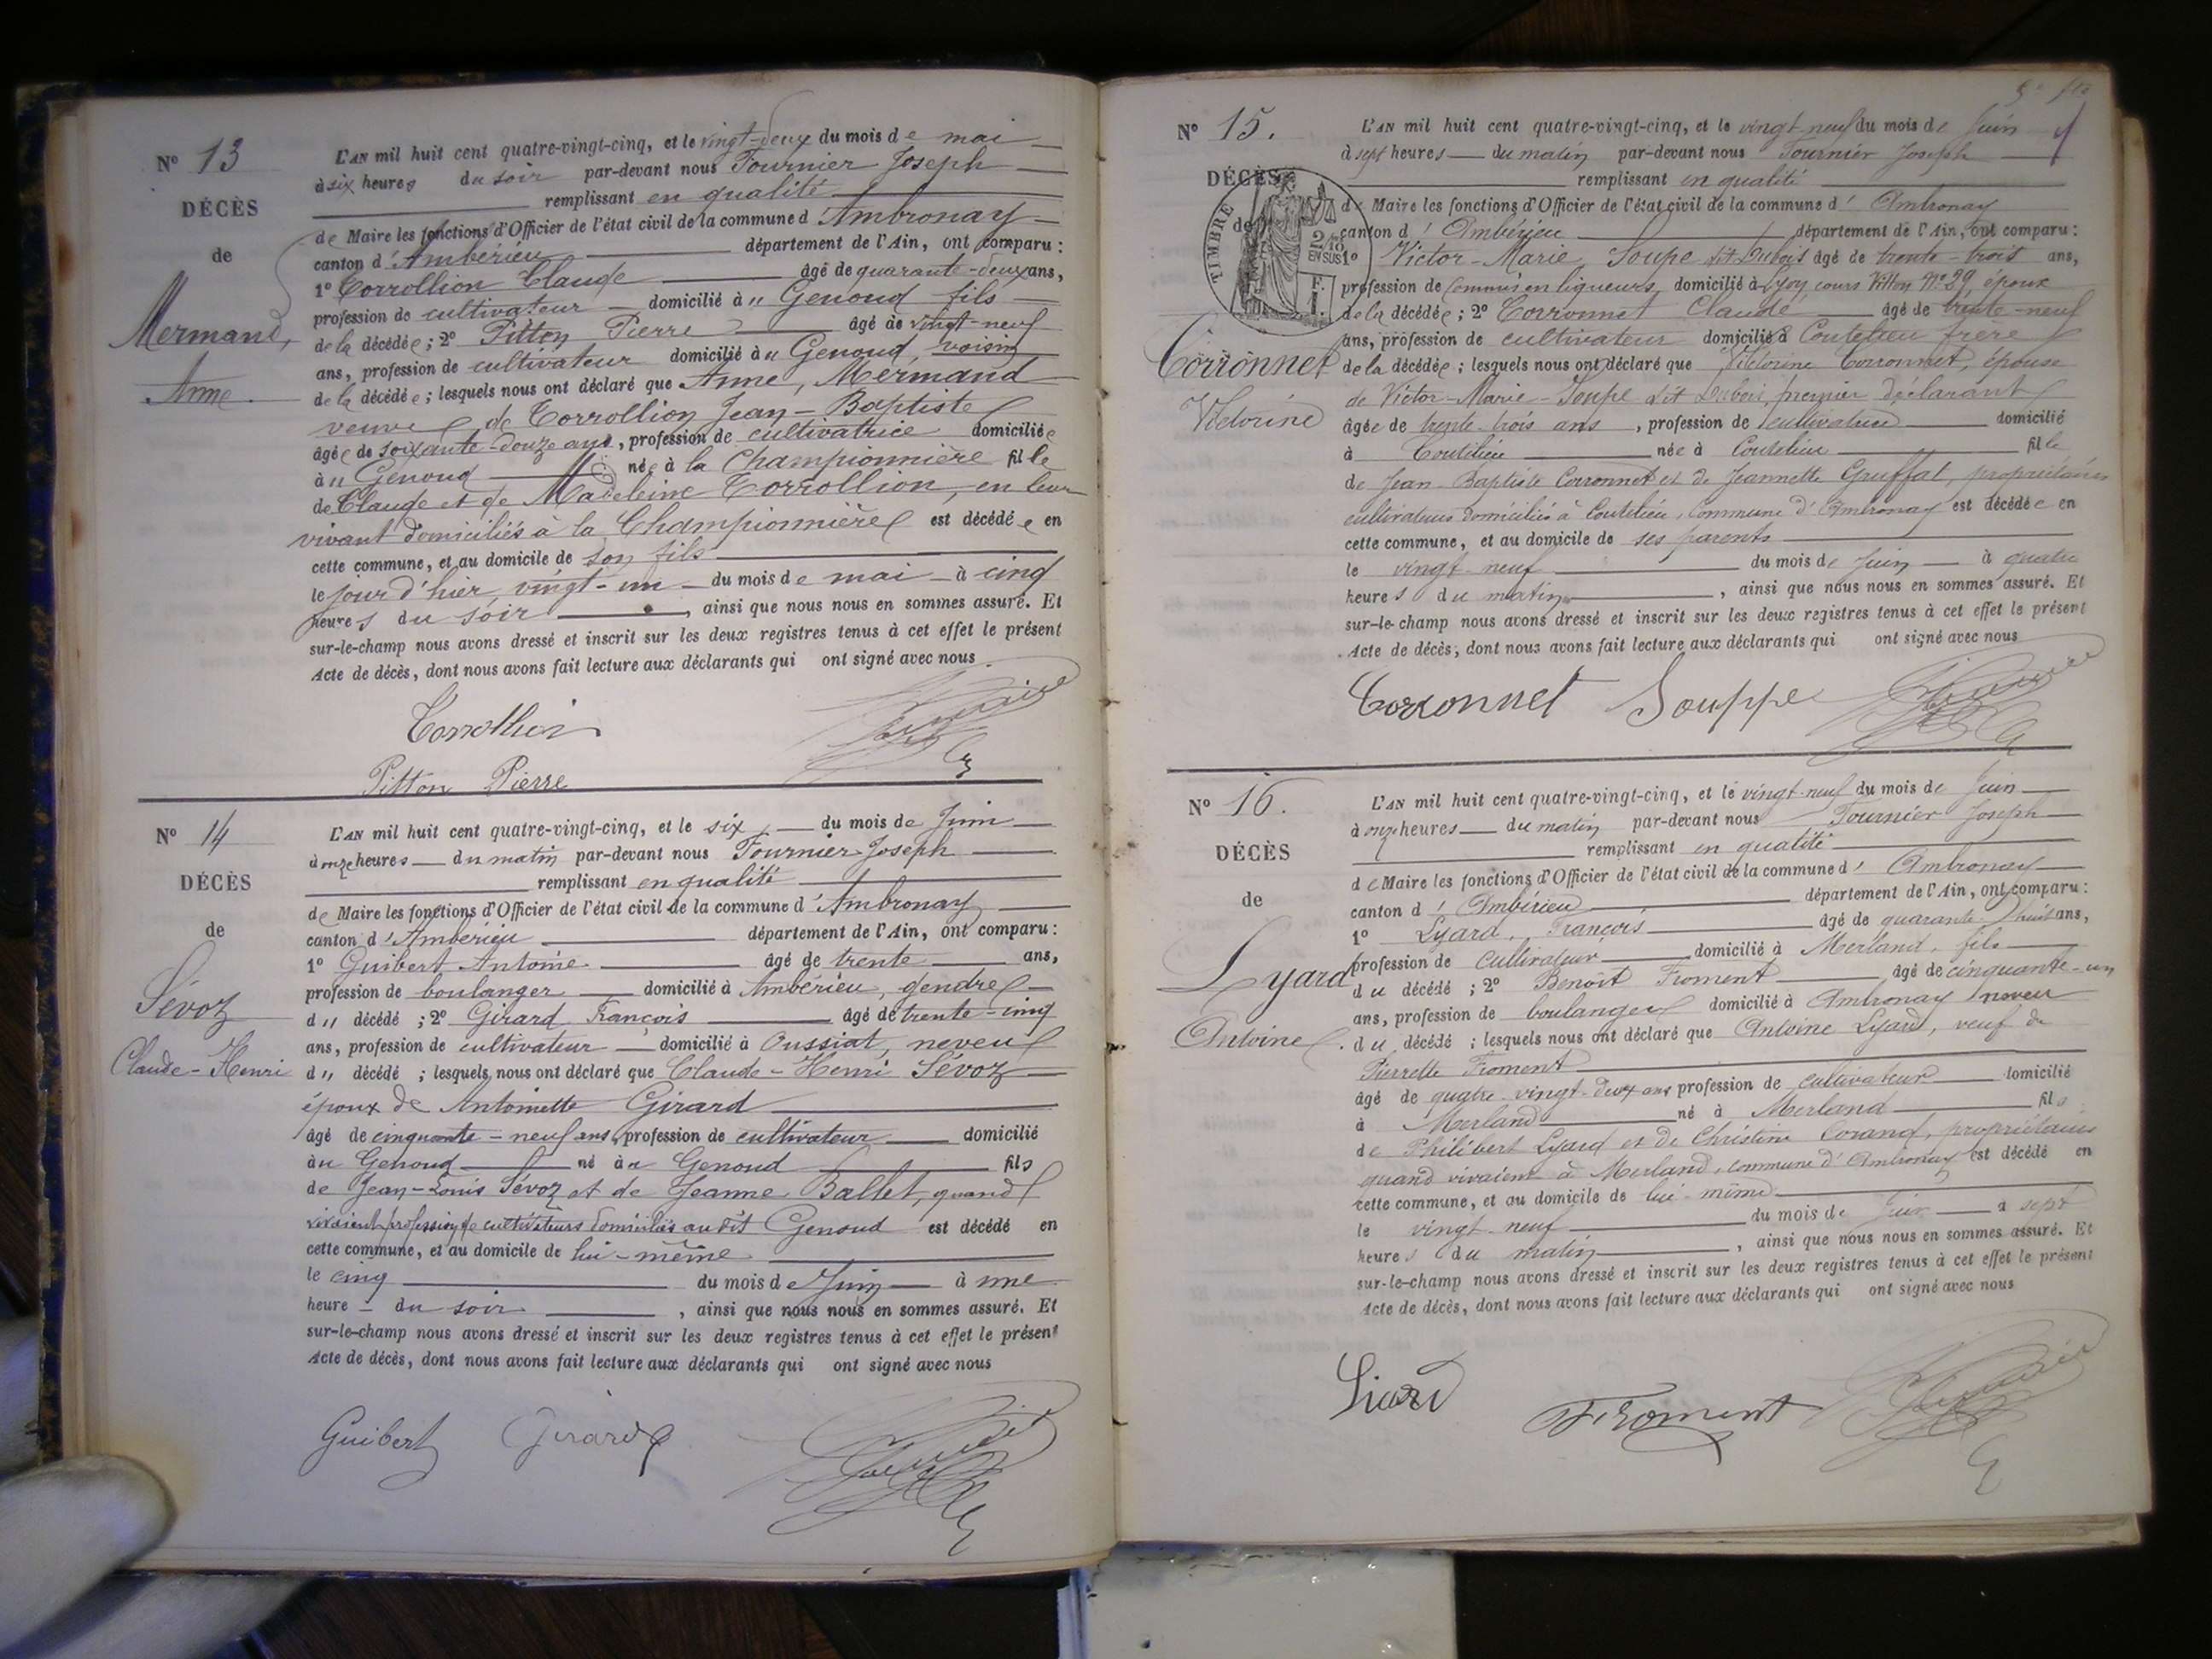 N° 13
DÉCÈS
de
Mermand,
Anne.
L'AN mil huit cent quatre-vingt-cinq, et le vingt-deux du mois de mai
à six heures du soir par-devant nous Fournier Joseph
remplissant en qualité
de Maire les fonctions d'Officier de l'état civil de la commune d'Ambronay
canton d'Ambérieu département de l'Ain, ont comparu :
1° Corrollion Claude âgé de quarante-deux ans,
profession de cultivateur domicilié à " Genoud fils
de la décédée ; 2° Pitton Pierre âgé de vingt-neuf
ans, profession de cultivateur domicilié à " Genoud, voisin
de la décédée ; lesquels nous ont déclaré que Anne, Mermand
veuve de Corrollion Jean-Baptiste
âgée de soixante-douze ans, profession de cultivatrice domiciliée
à " Genoud née à la Championnière fille
de Claude et de Madeleine Corrollion, en leur
vivant domiciliés à la Championnière est décédée en
cette commune, et au domicile de son fils
le jour d'hier, vingt-un du mois de mai à cinq
heures du soir, ainsi que nous nous en sommes assuré. Et
sur-le-champ nous avons dressé et inscrit sur les deux registres tenus à cet effet le présent
Acte de décès, dont nous avons fait lecture aux déclarants qui ont signé avec nous.
Corrollion
Pitton Pierre
N° 14
DÉCÈS
de
Sévoz
Claude-Henri
L'AN mil huit cent quatre-vingt-cinq, et le six du mois de Juin
à onze heures du matin par-devant nous Fournier Joseph
remplissant en qualité
de Maire les fonctions d'Officier de l'état civil de la commune d'Ambronay
canton d'Ambérieu département de l'Ain, ont comparu :
1° Guibert Antoine âgé de trente ans,
profession de boulanger domicilié à Ambérieu, gendre
du décédé ; 2° Girard François âgé de trente-cinq
ans, profession de cultivateur domicilié à Oussiat, neveu
du décédé ; lesquels nous ont déclaré que Claude-Henri Sévoz
époux de Antoinette Girard
âgé de cinquante-neuf ans, profession de cultivateur domicilié
au Genoud né au Genoud fils
de Jean-Louis Sévoz et de Jeanne Ballet, quand
vivaient profession de cultivateurs domiciliés au dit Genoud est décédé en
cette commune, et au domicile de lui-même
le cinq du mois de Juin à une
heure du soir, ainsi que nous nous en sommes assuré. Et
sur-le-champ nous avons dressé et inscrit sur les deux registres tenus à cet effet le présent
Acte de décès, dont nous avons fait lecture aux déclarants qui ont signé avec nous
Guibert Girard
N° 15.
DÉCÈS
de
TIMBRE
2/10 EN SUS
Corronnet
Victorine
L'AN mil huit cent quatre-vingt-cinq, et le vingt-neuf du mois de Juin
à sept heures du matin par-devant nous Fournier Joseph
remplissant en qualité
de Maire les fonctions d'Officier de l'état civil de la commune d'Ambronay
canton d'Ambérieu département de l'Ain, ont comparu :
1° Victor-Marie Soupe dit Dubois âgé de trente-trois ans,
profession de Commis en liqueurs domicilié à Lyon, cours Vitton N° 29, époux
de la décédée ; 2° Corronnet Claude âgé de trente-neuf
ans, profession de cultivateur domicilié à Coutelieu frère
de la décédée ; lesquels nous ont déclaré que Victorine Corronnet, épouse
de Victor-Marie-Soupe dit Dubois, premier déclarant
âgée de trente-trois ans, profession de cultivatrice domicilié
à Coutelieu née à Coutelieu fille
de Jean-Baptiste Corronnet et de Jeannette Gruffat, propriétaires
cultivateurs domiciliés à Coutelieu, commune d'Ambronay est décédée en
cette commune, et au domicile de ses parents
le vingt-neuf du mois de Juin à quatre
heures du matin, ainsi que nous nous en sommes assuré. Et
sur-le-champ nous avons dressé et inscrit sur les deux registres tenus à cet effet le présent
Acte de décès, dont nous avons fait lecture aux déclarants qui ont signé avec nous
Corronnet Souppe
N° 16.
DÉCÈS
de
Lyard
Antoine.
L'AN mil huit cent quatre-vingt-cinq, et le vingt-neuf du mois de Juin
à onze heures du matin par-devant nous Fournier Joseph
remplissant en qualité
de Maire les fonctions d'Officier de l'état civil de la commune d'Ambronay
canton d'Ambérieu département de l'Ain, ont comparu :
1° Lyard, François âgé de quarante-huit ans,
profession de cultivateur domicilié à Merland, fils
du décédé ; 2° Benoît Froment âgé de cinquante-un
ans, profession de boulanger domicilié à Ambronay neveu
du décédé ; lesquels nous ont déclaré que Antoine Lyard, veuf de
Pierrette Froment
âgé de quatre-vingt-deux ans profession de cultivateur domicilié
à Merland né à Merland fils
de Philibert Lyard et de Christine Corand, propriétaires
quand vivaient à Merland, commune d'Ambronay est décédé en
cette commune, et au domicile de lui-même
le vingt-neuf du mois de Juin à sept
heures du matin, ainsi que nous nous en sommes assuré. Et
sur-le-champ nous avons dressé et inscrit sur les deux registres tenus à cet effet le présent
Acte de décès, dont nous avons fait lecture aux déclarants qui ont signé avec nous
Liard
Froment